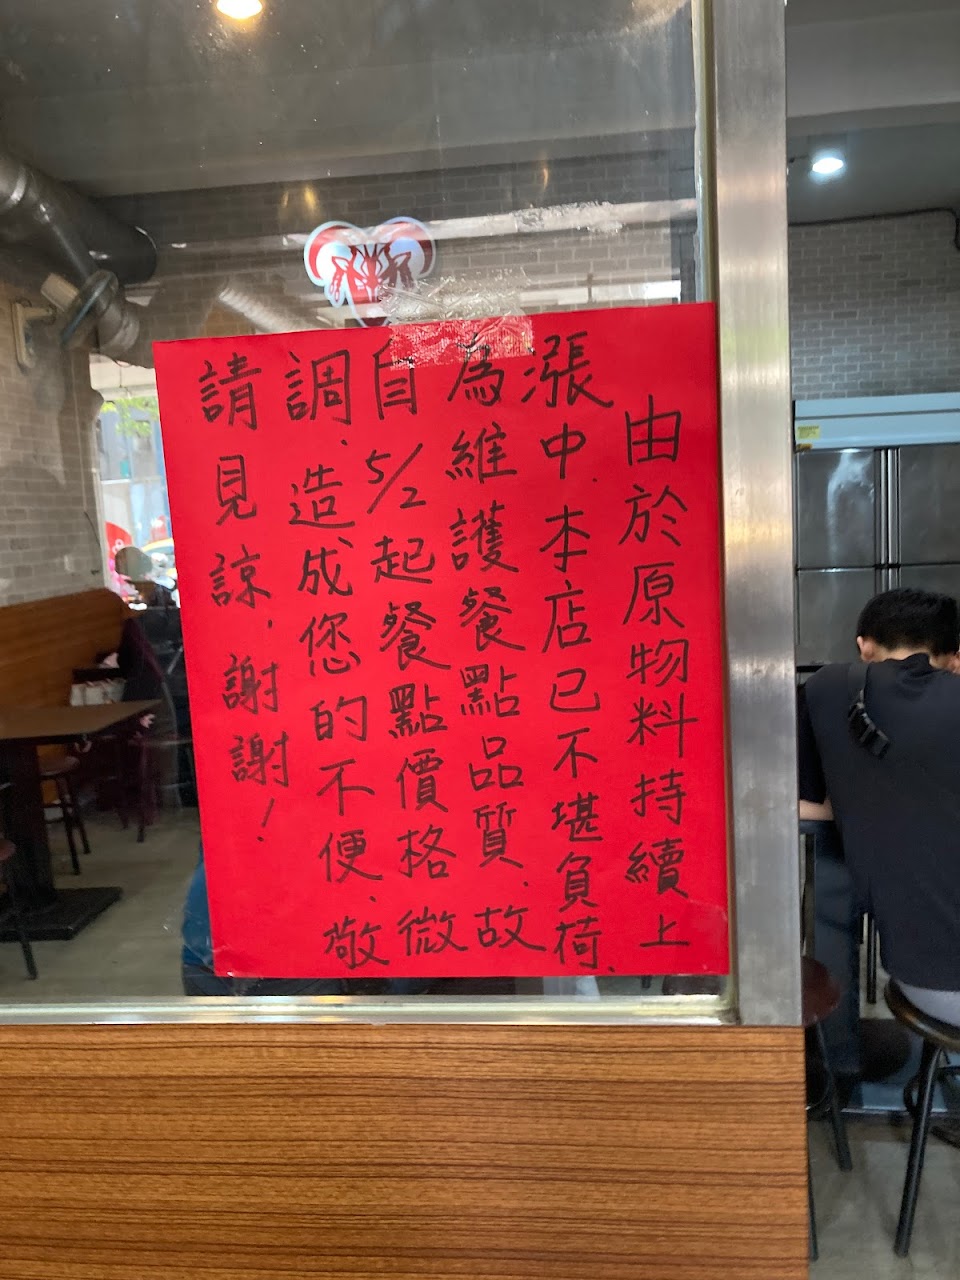 由於原物料持續上
漲中、本店已不堪負荷、
為維護餐點品質、故
自5/2起餐點價格微
調、造成您的不便、敬
請見諒，謝謝！